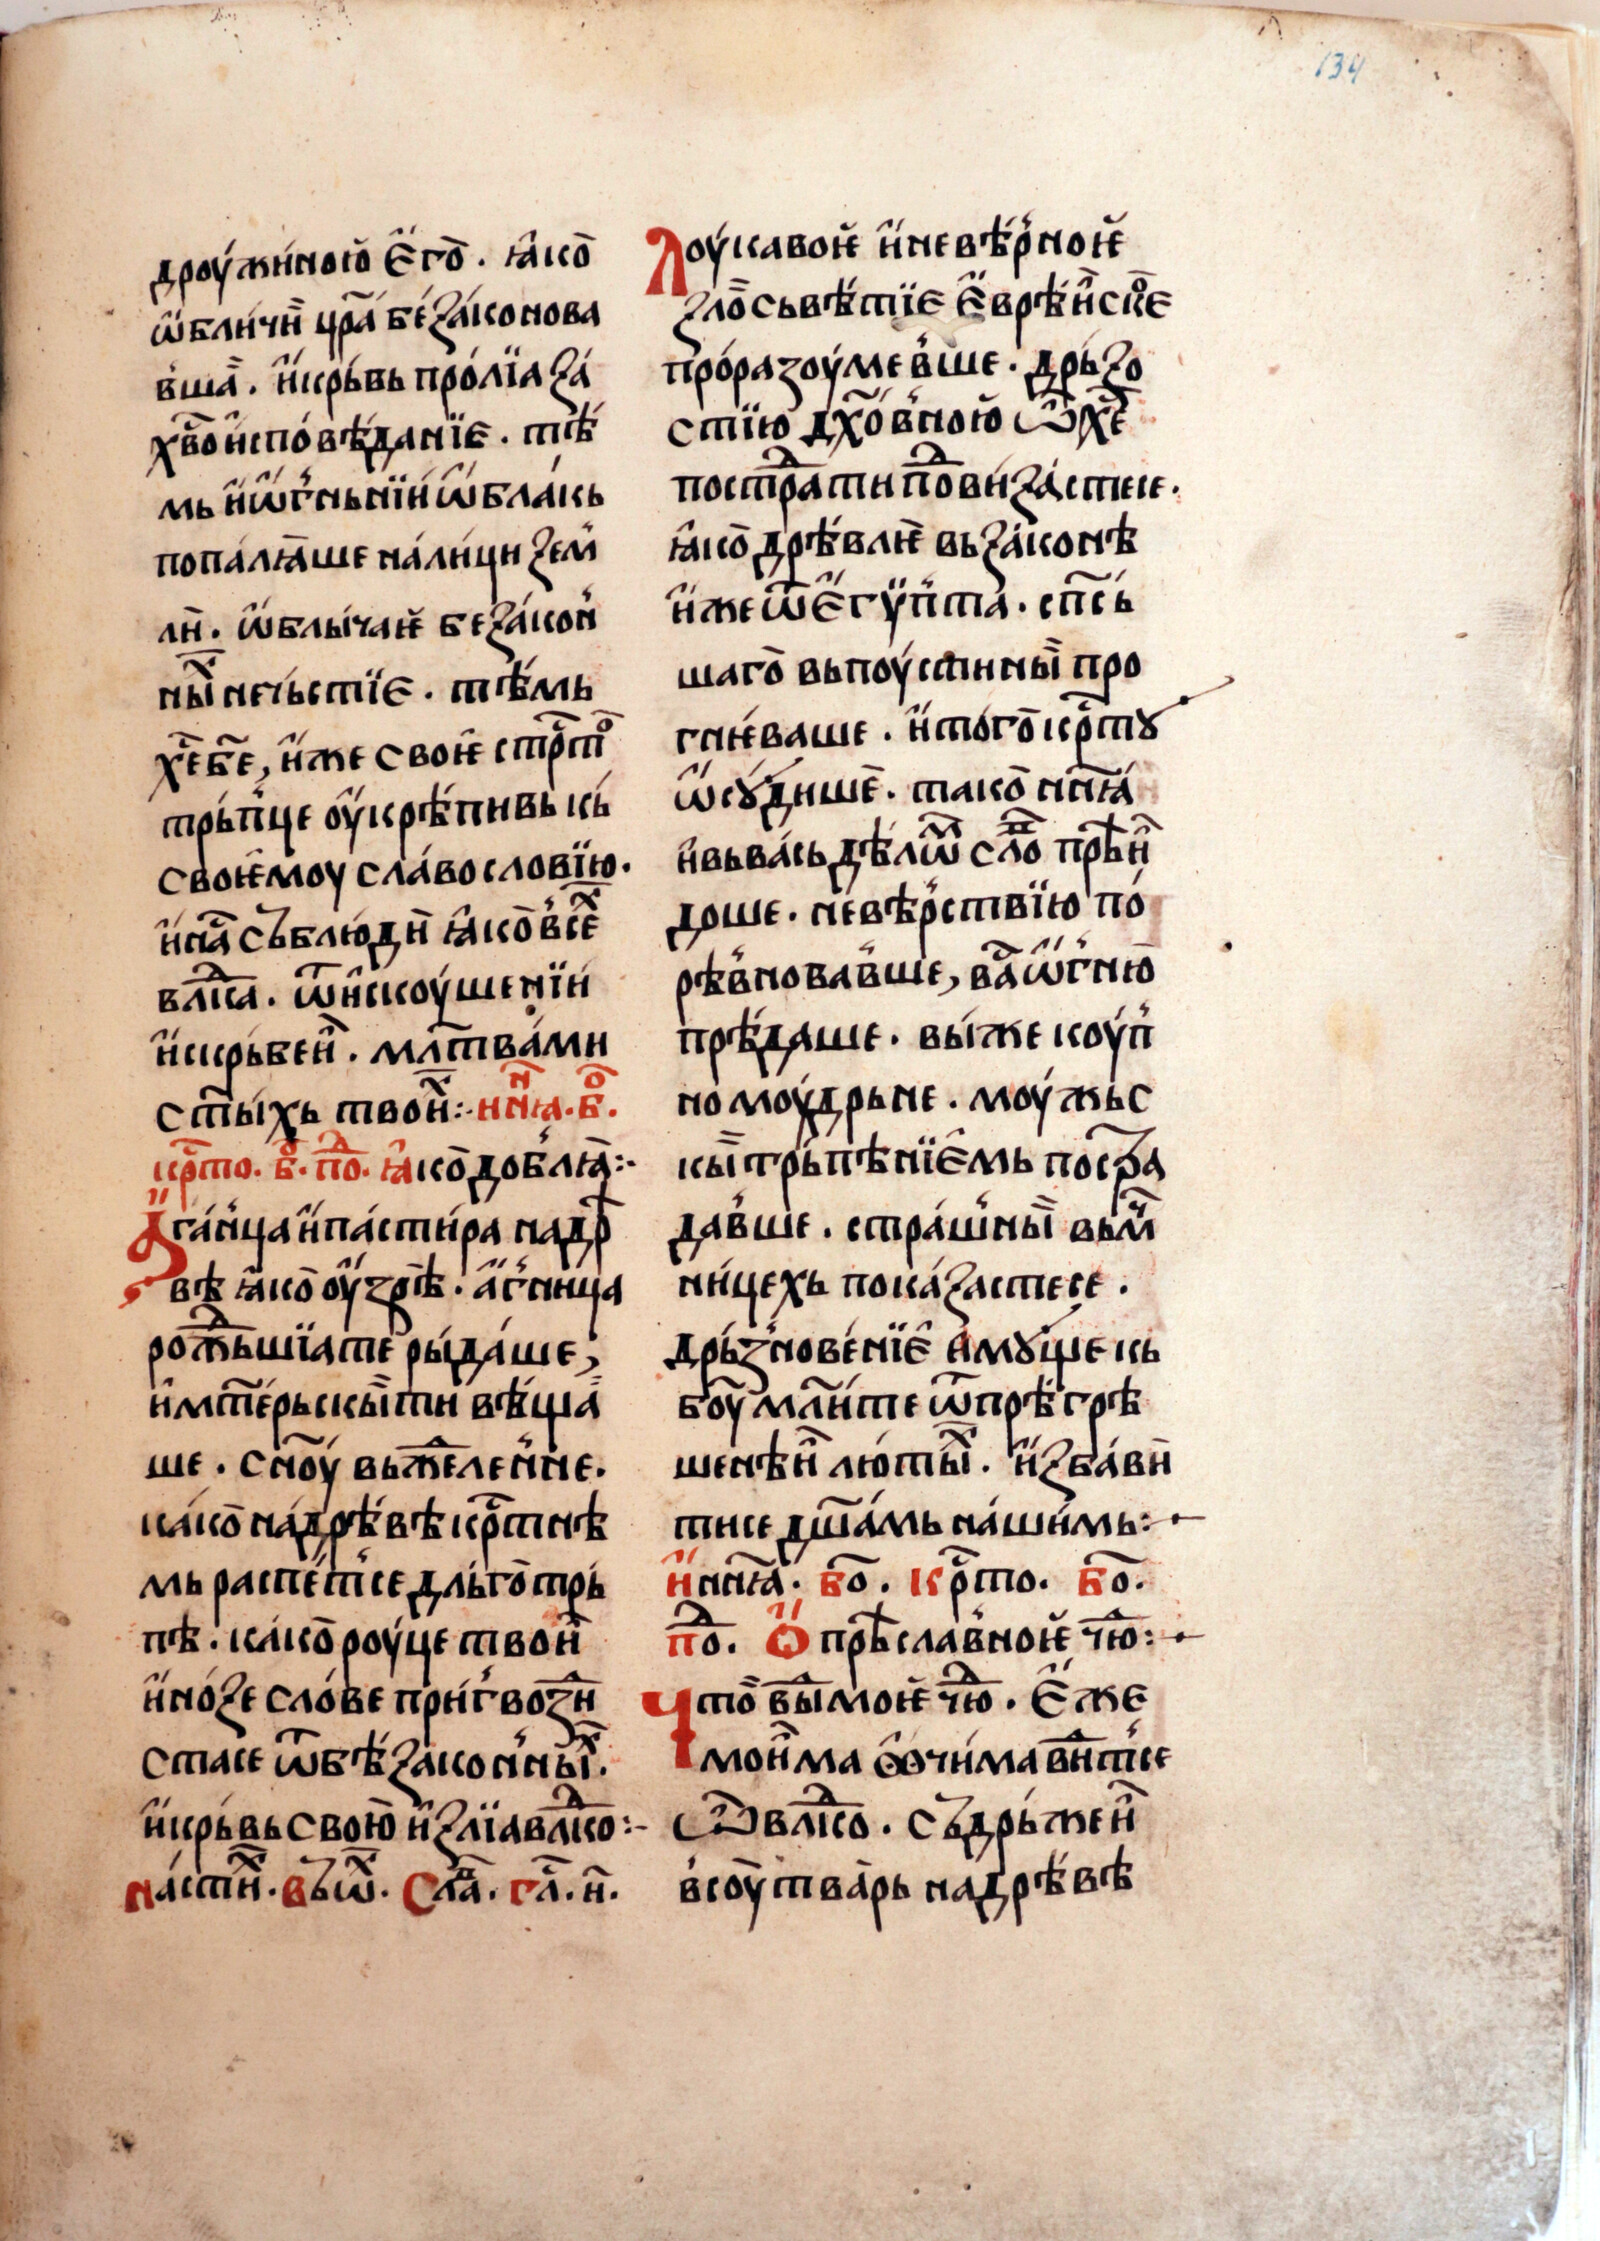 134
дроужи́ною̀ є҆го̀. ꙗ҆ко̀
ѡ҆бли́чи цр҃а̀ бе́ꙁа́конова
в̾ша̀. и҆кры́вь про́лїа ꙁа́
хв҃ои҆спо́вѣ́данїє. тѣ́
мь и҆ѡ҆гн̾ьнїи ѡ҆бла́кь
попа́лꙗ҆ше на́ли́ци ꙁем̾
ли. ѡ҆блы́чаѥ бе́ꙁа́кон̾
ныⷯ нечь́стїє. тѣ́мь
хе҃бе҃, и҆же своѥ стрⷭ҇тоⷪ
трьп̾це оу҆крѣ́пивь кь
своѥ҆моу сла́вословїю.
и҆на҃съблю́ди ꙗ҆ко̀в̾сеⷯ
влⷣка. ѿи҆скоу́шенїи
и҆скрь́беи. млт҃ва́ми
ст҃ы́хь твоиⷯ:· ннꙗⷩ҇. бⷪ҇.
крⷭ҇то. бⷪ҇. поⷣ. ꙗ҆ко̀доб̾лꙗ:·
а҆га́н̾ца и҆па́сти́ра надрⷭ
вѣ ꙗ҆ко̀ оу҆ꙁрⷭѣ. а҆г̾ница
рожⷣьшїа те ры́да́ше,
и҆мт҃е́рьскы́ти вѣ́ща̀
ше. сн҃оу́ вьжⷣелен̾не.
ка́ко̀ на́дрѣ́вѣ крⷭ҇тнѣ
мь распе́т̾се дль́го̀трь́
пѣ. ка́ко̀ роу́це твои
и҆но́ꙁе сло́ве при́г̾воꙁⷣи
стасе ѿбѣ́ꙁакон̾ныⷯ.
и҆кры́вь свою̀ и҆ꙁлїа влⷣко:-
настиⷯ. въѡⷯ. слаⷡ҇. глⷭ. и.
лоу́кавоѥ и҆невѣ́р̾ноѥ
ꙁло̀сьвѣ́тїє є҆врѣ́искоⷪє
про́раꙁоу́мев̾ше. дрь́ꙁо
стїю дх҃о́в̾ною̀ ѡ҆хе҃
постраⷣти поⷣви́ꙁа́стесе.
ꙗ҆ко̀ дрѣ́влѥ вьꙁа́конѣ
и҆же ѿє҆гѵ̈п̾та. сп҃сь́
шаго̀ вьпоу́стины̀ про
гнѣ́ваше. и҆того̀ крⷭ҇тꙋ
ѡ҆сꙋ́дишѐ. тако̀ нн҃ꙗ́
и҆вьва́сь дѣ́лѡⷨ слоⷡ прѣи
до́ше. невѣ́р̾ствїю по́
рѣв̾новав̾ше, ва҃ ѡ҆г̾ню̀
прѣ́даше. вы́же коу́п̾
номоу́дрьне. моу́жьс
кы̀ трь́пѣ́нїѥмь постра
дав̾ше. стра́ш̾ны̀ вьм̾
ни́цехь пока́ꙁастесе.
дрь́ꙁ̾нове́нїє и҆мꙋ́ще кь
бо҃у мл҃и́те ѿпрѣ̀грѣ
шенѣи лю́тыⷯ. и҆ꙁба́ви
тисе дш҃а́мь на́ши́мь:·
и҆ нн҃ꙗ. бо҃. крⷭ҇то. бо҃.
поⷣ. ѽ прѣславноѥ чюⷣ:·
что̀ виⷣмоѥ чюⷣ. є҆же
мои́ма ѻ҆чи́ма виⷣт̾се
ѿвлⷣко. съдрь́жеи
в̾соу̀ тва̀рь на́дрѣ́вѣ